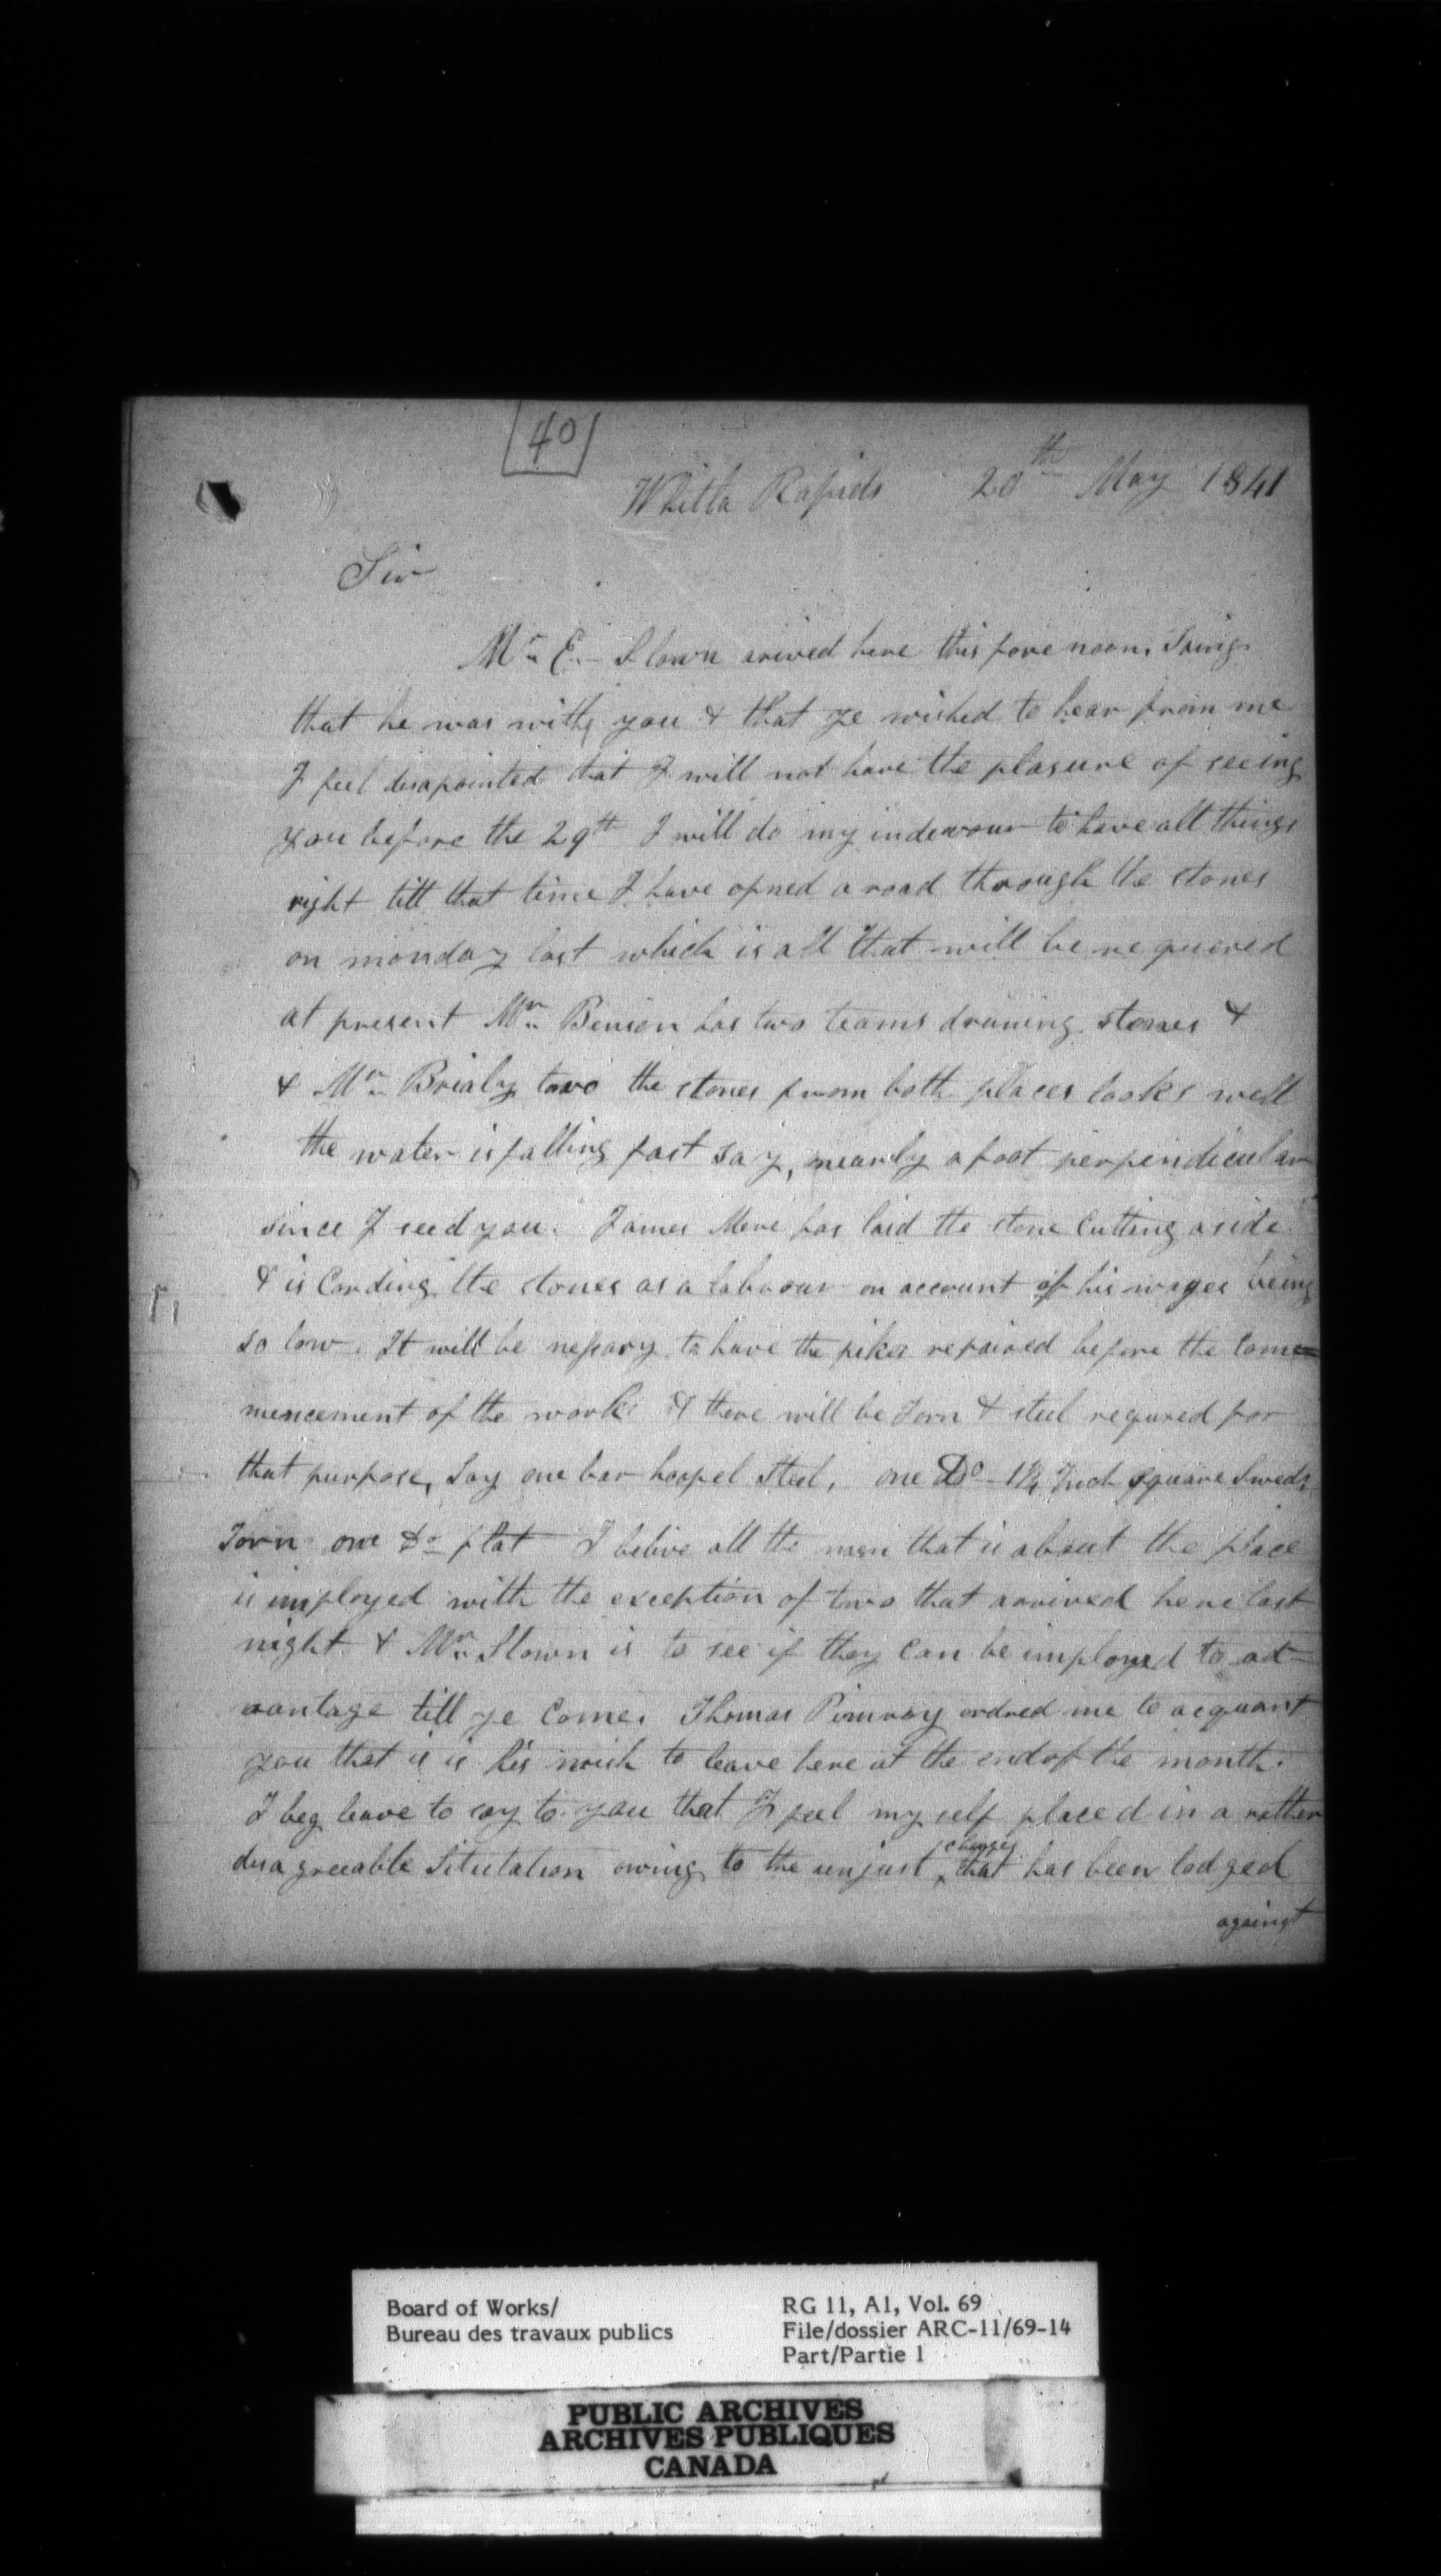 40
Whitla Rapids 20th May 1841
Sir
Mr. E. Slown arived here this fore noon, Saing
that he was with you & that ye wished to hear from me
I feel disapointed that I will not have the plasure of seeing
you before the 29th I will do my indevour to have all things
right till that time I have opned a road through the stones
on monday last which is all that will be requered
at present Mr. Benson has two teams drawing stones &
& Mr. Brialy two the stones from both places looks well
the water is falling fast say, nearly a foot perpendicular
since I seed you. James Mere has laid the stone Cutting aside
& is Cording the stones as a labrour on account of his wages being
so low. It will be nessary to have the pikes repaired before the Come=
mencement of the work & there will be Iorn & steel requred for
that purpose, Say one bar hoopel Steel, one Do 1¼ Inch square Sweds
Iorn one Do flat I belive all the men that is about the place
is imployed with the exception of two that arrived here last
night & Mr. Slown is to see if they can be imployed to ad-
vantage till ye Come. Thomas Pimroy ordred me to acquant
you that it is his wish to leave here at the end of the month.
I beg leave to say to you that I feel my self placed in a rather
disagreeable Situtation owing to the unjust charges that has been lodged
against
Board of Works/
Bureau des travaux publics
RG 11, A1, Vol. 69
File/dossier ARC-11/69-14
Part/Partie 1
PUBLIC ARCHIVES
ARCHIVES PUBLIQUES
CANADA